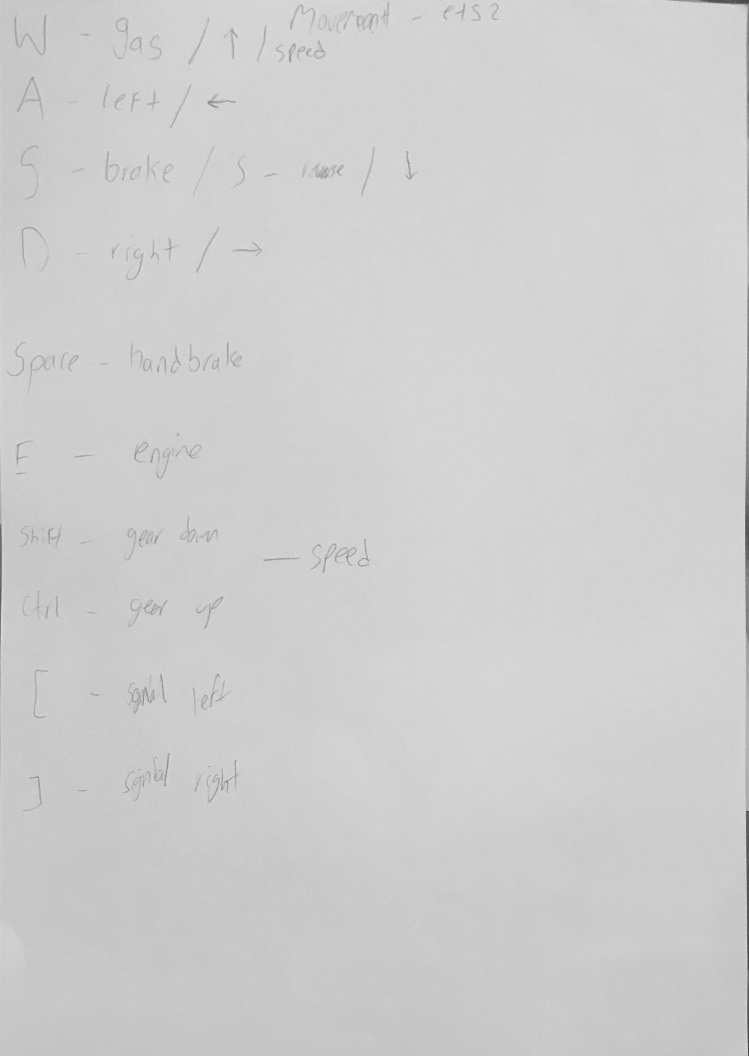 Movement - ets2
W - gas / ↑ / speed
A - left / ←
S - brake / S - / ↓
D - right / →
Space - handbrake
E - engine
Shift - gear down
— speed
Ctrl - gear up
[ - signal left
] - signal right